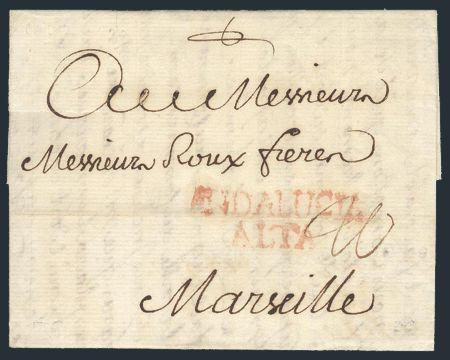 A Messieurs
Messieurs Roux freres
ANDALUCIA
ALTA
Marseille